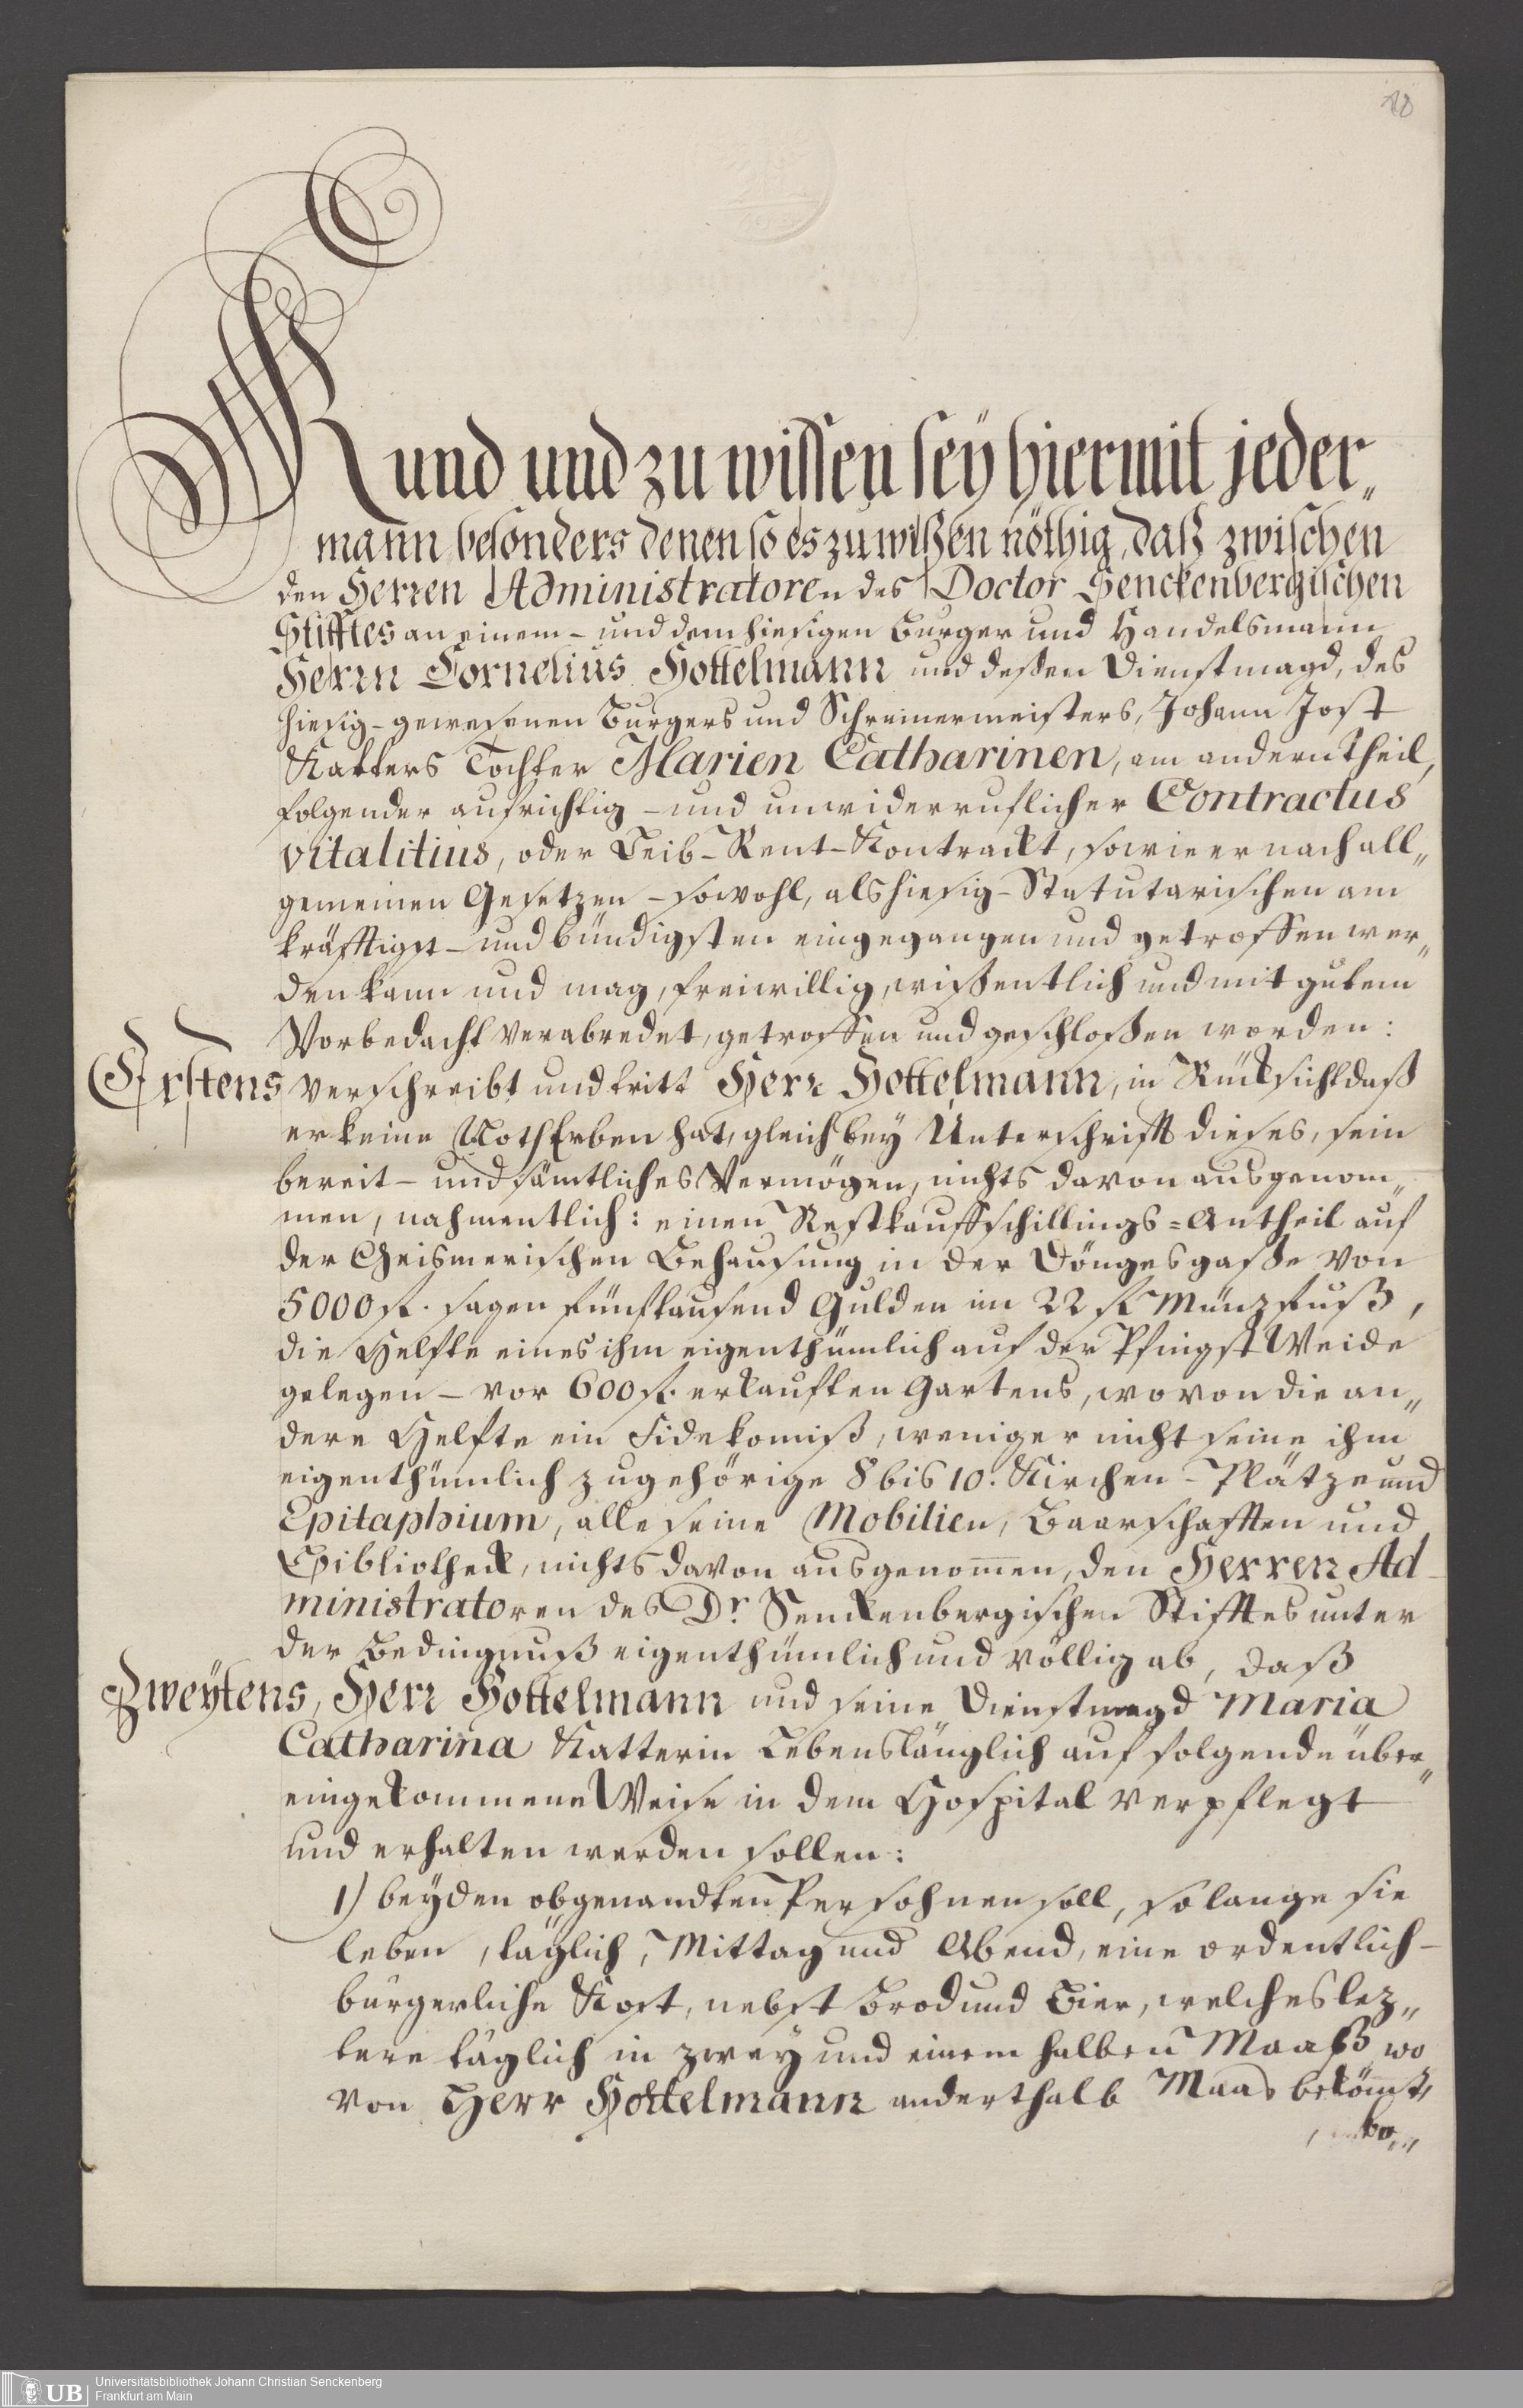 18
Kund und zu wissen sey hiermit jeder„
mann besonders denen so es zu wißen nöthig, daß zwischen
den Herren Administratoren des Doctor Senckenbergischen
Stifftes an einem - und dem hiesigen Burger und Handelsmann
Herrn Cornelius Hottelmann und deßen Dienstmagd, des
hiesig-gewesenen Burgers und Schreinermeisters, Johann Jost
Katters Tochter Marien Catharinen, am andern Theil,
folgender aufrichtig - und unwiderruflicher Contractus
vitalitius, oder Leib-Rent-Kontrackt, sowie er nach all„
gemeinen Gesetzen - sowohl, als hiesig-Statutarischen am
kräfftigst - und bündigsten eingegangen und getroffen wer„
den kann und mag, freiwillig, wißentlich und mit gutem
Vorbedacht verabredet, getroffen und geschloßen worden:
Erstens verschreibt und tritt Herr Hottelmann, in Rücksicht daß
er keine NothErben hat, gleich bey Unterschrifft dieses, sein
bereit - und sämtliches Vermögen, nichts davon ausgenom„
men, nahmentlich: einen Restkauffschillings=Antheil auf
der Geismerischen Behausung in der Döngesgaße von
5000 fl. sagen fünftausend Gulden im 22 fl Münzfuß,
die Helfte eines ihm eigenthümlich auf der Pfingst Weide
gelegen - vor 600 fl. erkauften Gartens, wovon die an„
dere Helfte ein Fidekomiß, weniger nicht seine ihm
eigenthümlich zugehörige 8 bis 10. Kirchen-Plätze und
Epitaphium, alle seine Mobilien, Baarschafften und
Bibliotheck, nichts davon ausgenom̄en, den Herren Ad-
ministratoren des Dr. Senckenbergischen Stifftes unter
der Bedingnuß eigenthümlich und völlig ab, daß
Zweytens, Herr Hottelmann und seine Dienstmagd Maria
Catharina Katterin Lebenslänglich auf folgende über„
eingekommene Weise in dem Hospital verpflegt
und erhalten werden sollen:
1) beyden obgenandten Persohnen soll, so lange sie
leben, täglich, Mittag und Abend, eine ordentlich-
bürgerliche Kost, nebst Brod und Bier, welches lez„
tere täglich in zwey und einem halben Maaß, wo
von Herr Hottelmann anderthalb Maas bekömt,
be„
Universitätsbibliothek Johann Christian Senckenberg
Frankfurt am Main
UB